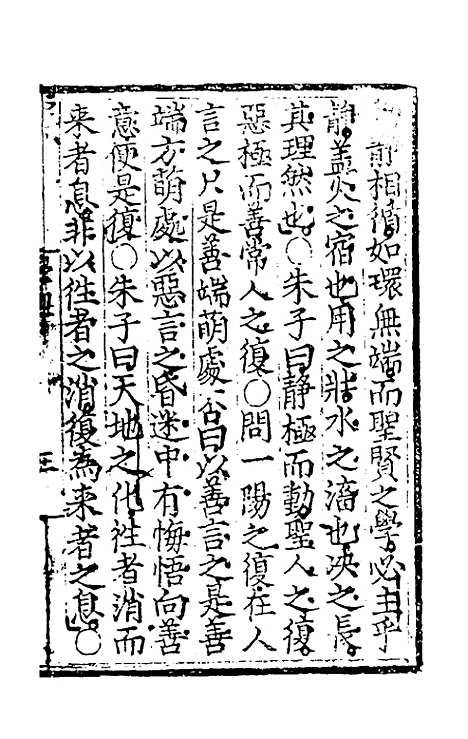 靜相循如環無端而聖賢之學必主乎
靜蓋火之宿也用之壯水之滀也决之長
其理然也○朱子曰靜極而動聖人之復
惡極而善常人之復○問一陽之復在人
言之只是善端萌處否曰以善言之是善
端方萌處以惡言之昏迷中有悔悟向善
意便是復○朱子曰天地之化往者消而
来者息非以往者之消復為来者之息○